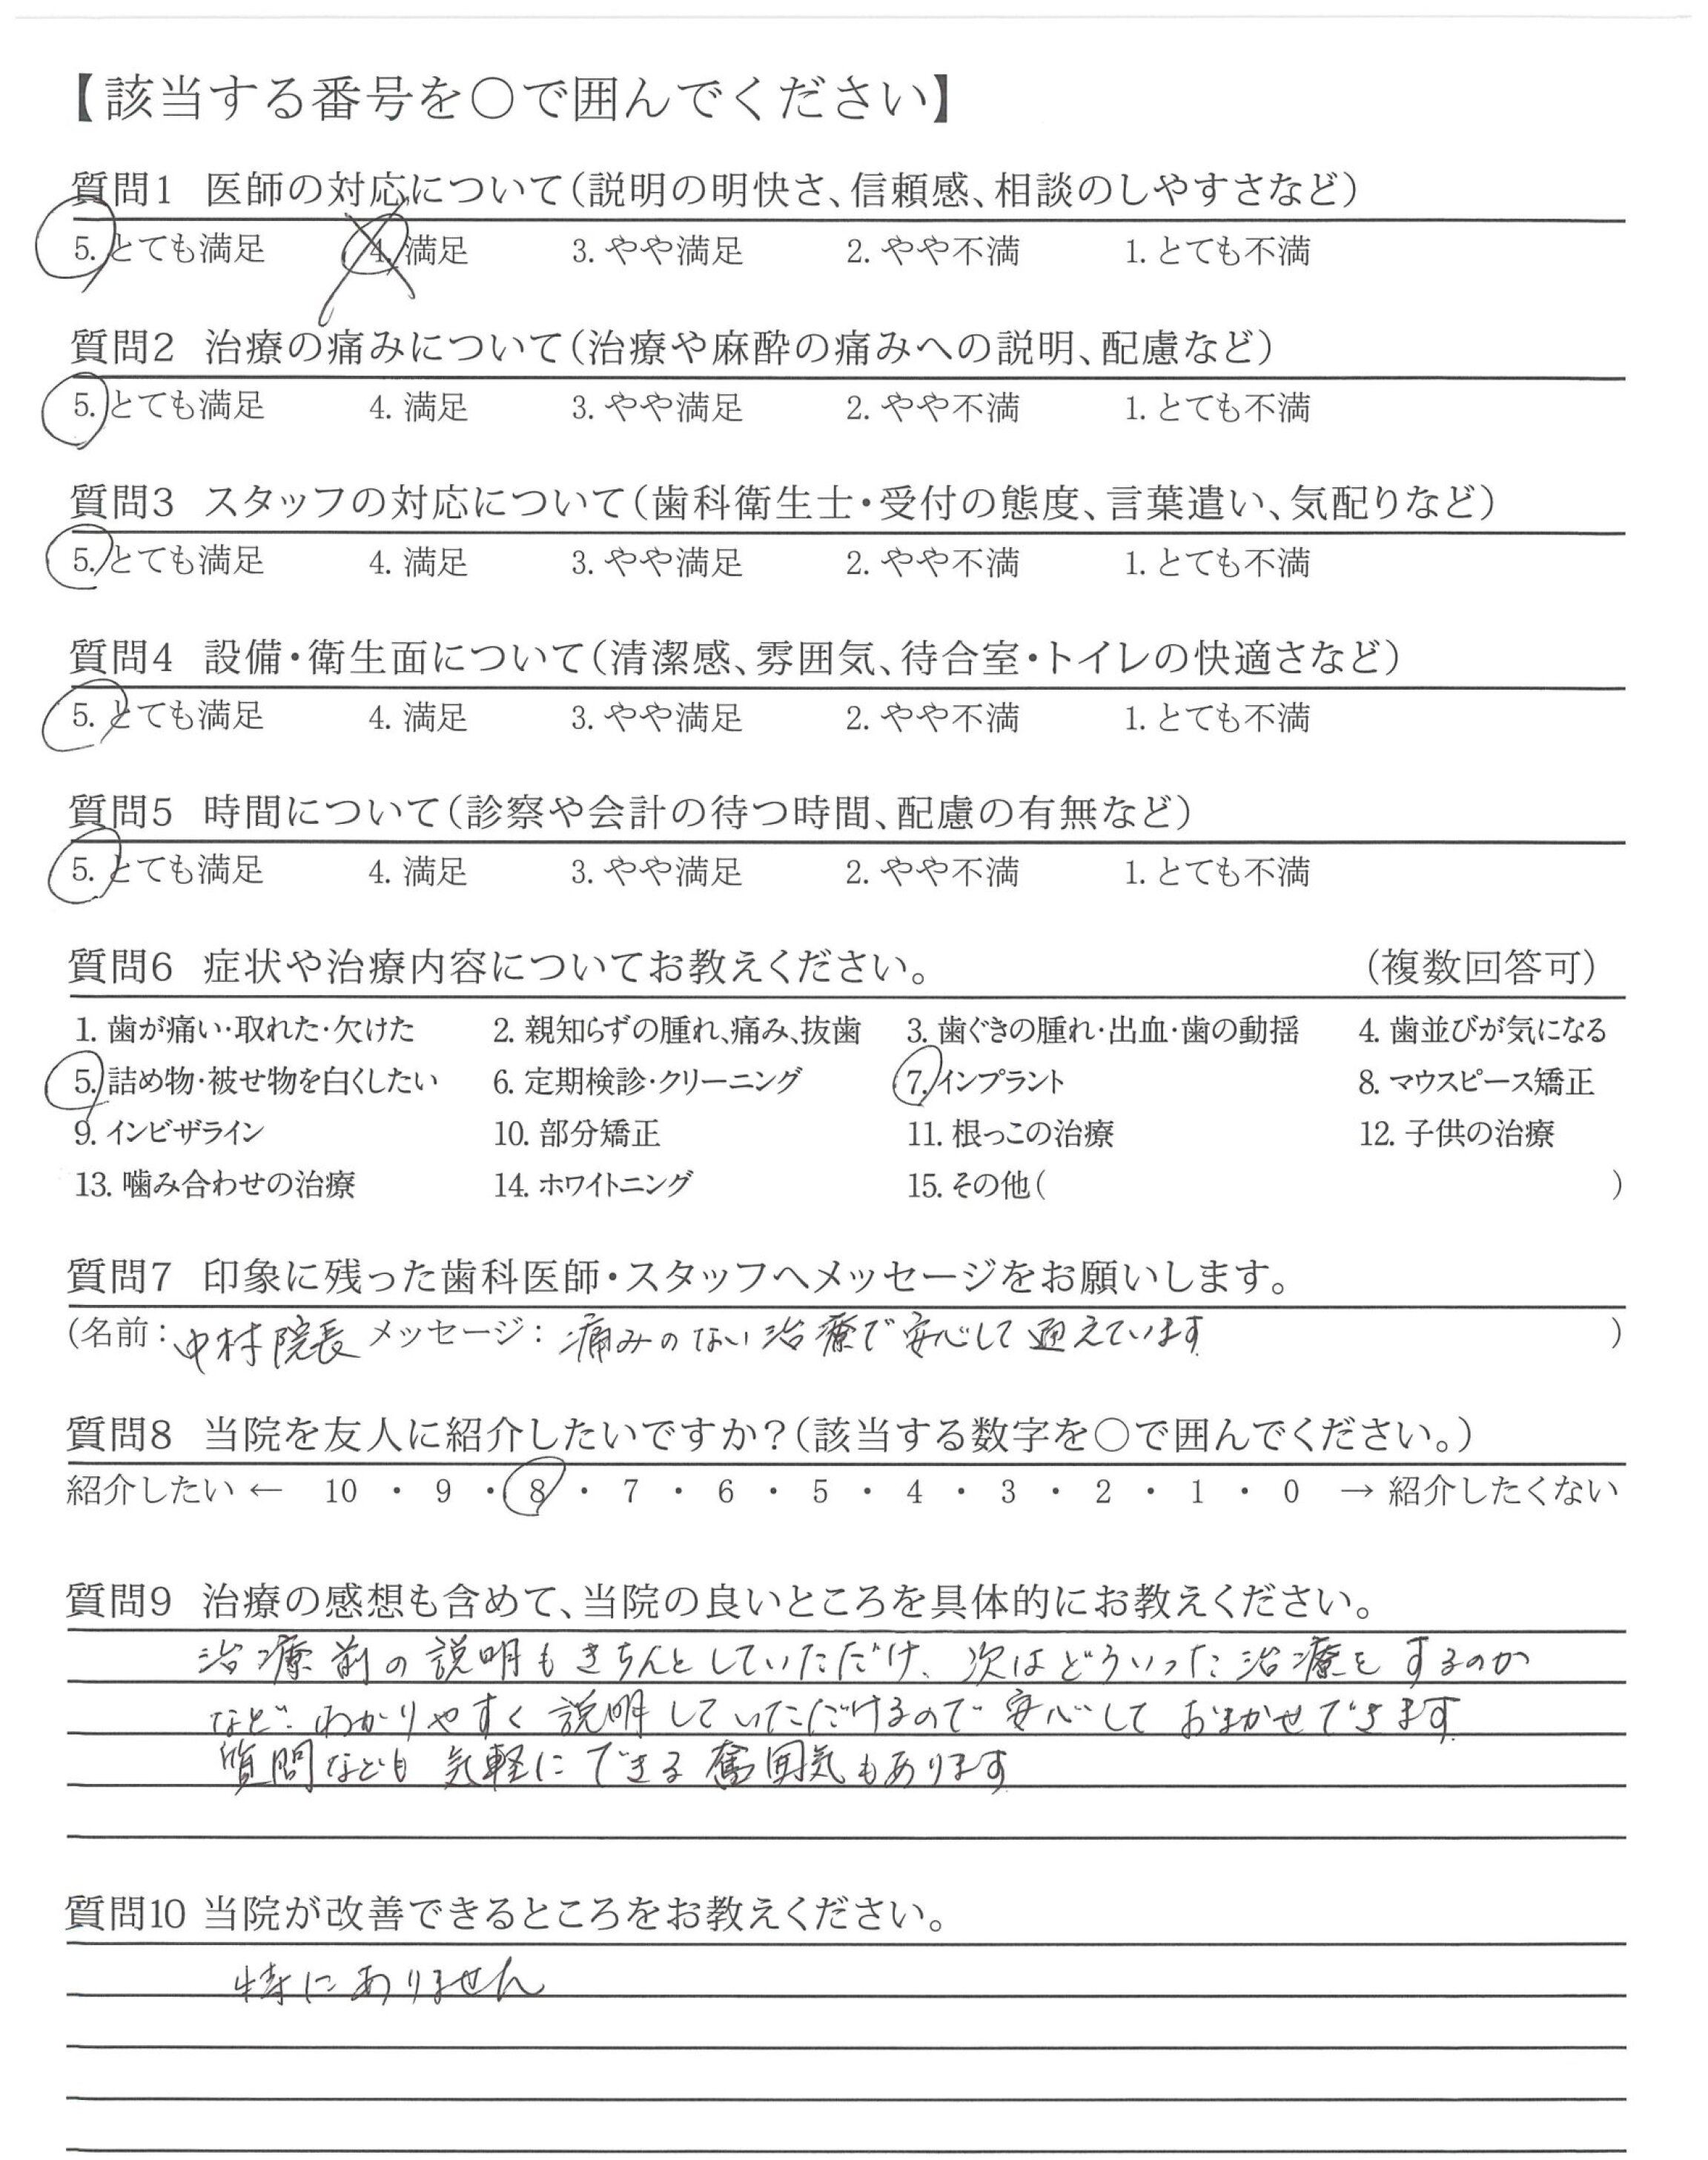 【該当する番号を○で囲んでください】
質問1 医師の対応について(説明の明快さ、信頼感、相談のしやすさなど)
5. とても満足 4. 満足 3. やや満足 2. やや不満 1. とても不満
質問2 治療の痛みについて(治療や麻酔の痛みへの説明、配慮など)
5. とても満足 4. 満足 3. やや満足 2. やや不満 1. とても不満
質問3 スタッフの対応について(歯科衛生士・受付の態度、言葉遣い、気配りなど)
5. とても満足 4. 満足 3. やや満足 2. やや不満 1. とても不満
質問4 設備・衛生面について(清潔感、雰囲気、待合室・トイレの快適さなど)
5. とても満足 4. 満足 3. やや満足 2. やや不満 1. とても不満
質問5 時間について(診察や会計の待つ時間、配慮の有無など)
5. とても満足 4. 満足 3. やや満足 2. やや不満 1. とても不満
質問6 症状や治療内容についてお教えください。 (複数回答可)
1. 歯が痛い・取れた・欠けた 2. 親知らずの腫れ、痛み、抜歯 3. 歯ぐきの腫れ・出血・歯の動揺 4. 歯並びが気になる
5. 詰め物・被せ物を白くしたい 6. 定期検診・クリーニング 7. インプラント 8. マウスピース矯正
9. インビザライン 10. 部分矯正 11. 根っこの治療 12. 子供の治療
13. 噛み合わせの治療 14. ホワイトニング 15. その他( )
質問7 印象に残った歯科医師・スタッフへメッセージをお願いします。
(名前: 中村院長 メッセージ: 痛みのない治療で安心して通えています )
質問8 当院を友人に紹介したいですか?(該当する数字を○で囲んでください。)
紹介したい ← 10 ・ 9 ・ 8 ・ 7 ・ 6 ・ 5 ・ 4 ・ 3 ・ 2 ・ 1 ・ 0 → 紹介したくない
質問9 治療の感想も含めて、当院の良いところを具体的にお教えください。
治療前の説明もきちんとしていただけ、次はどういった治療をするのか
など、わかりやすく説明していただけるので安心しておまかせできます
質問なども気軽にできる雰囲気もあります
質問10 当院が改善できるところをお教えください。
特にありません